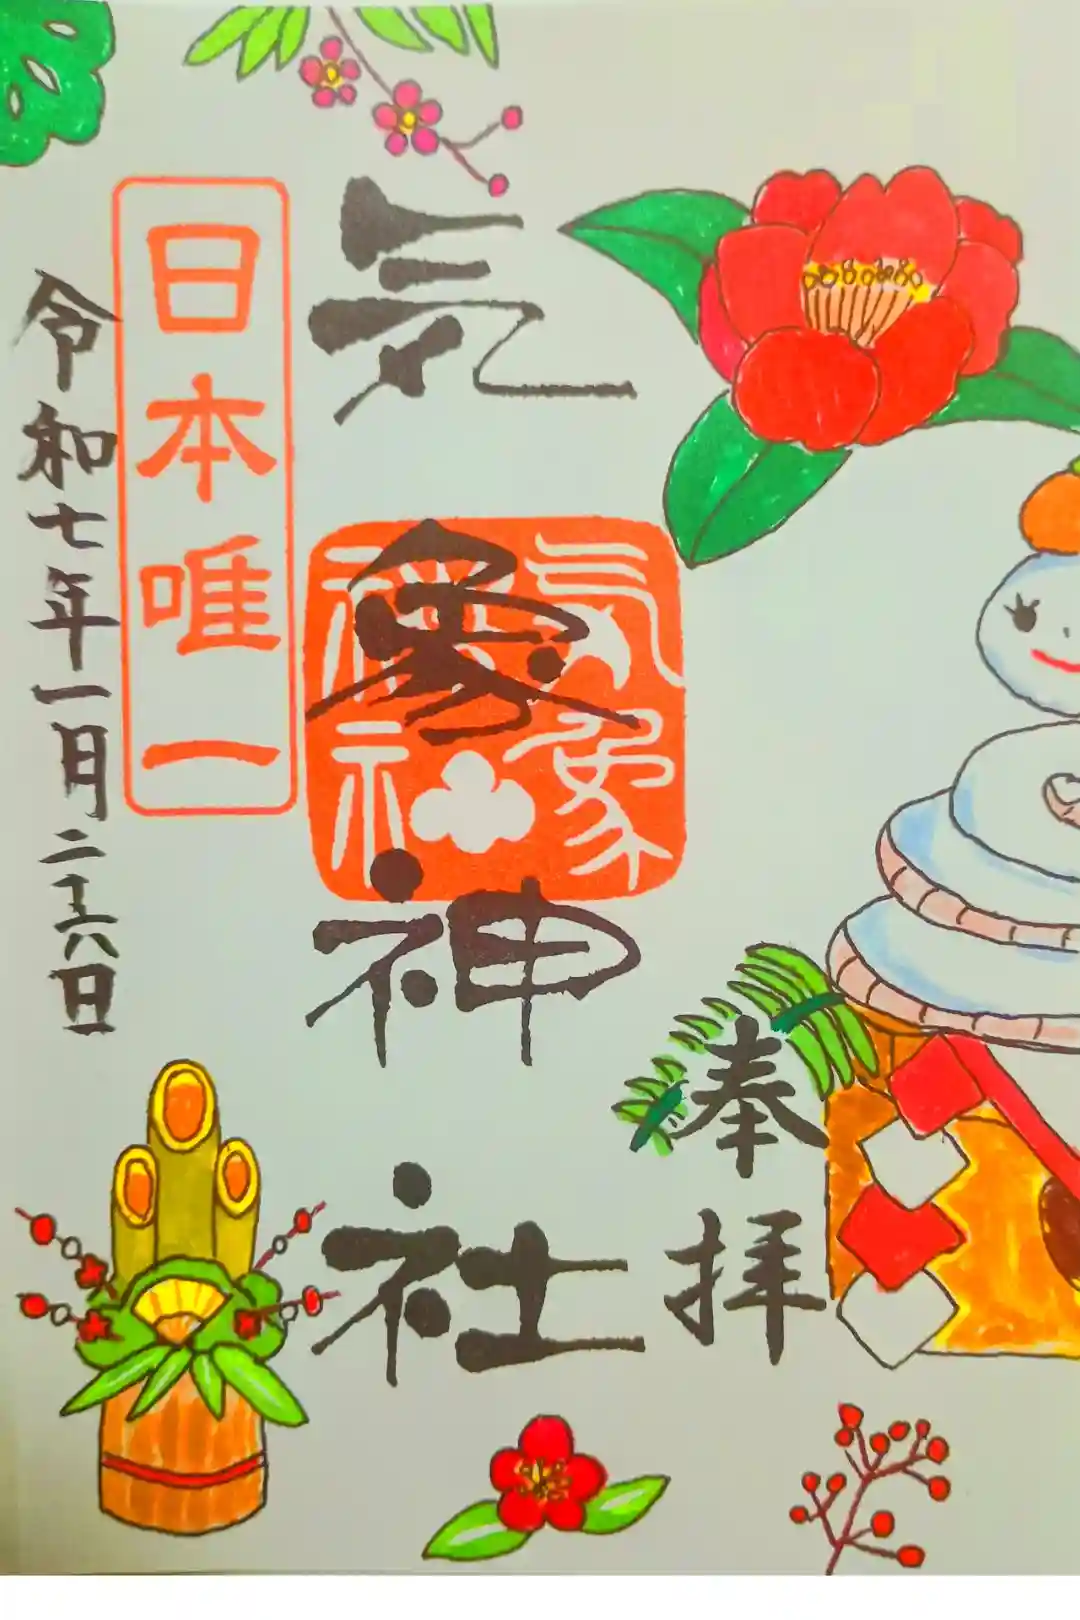 奉拝
気象神社
気象神社
日本唯一
令和七年一月二十六日